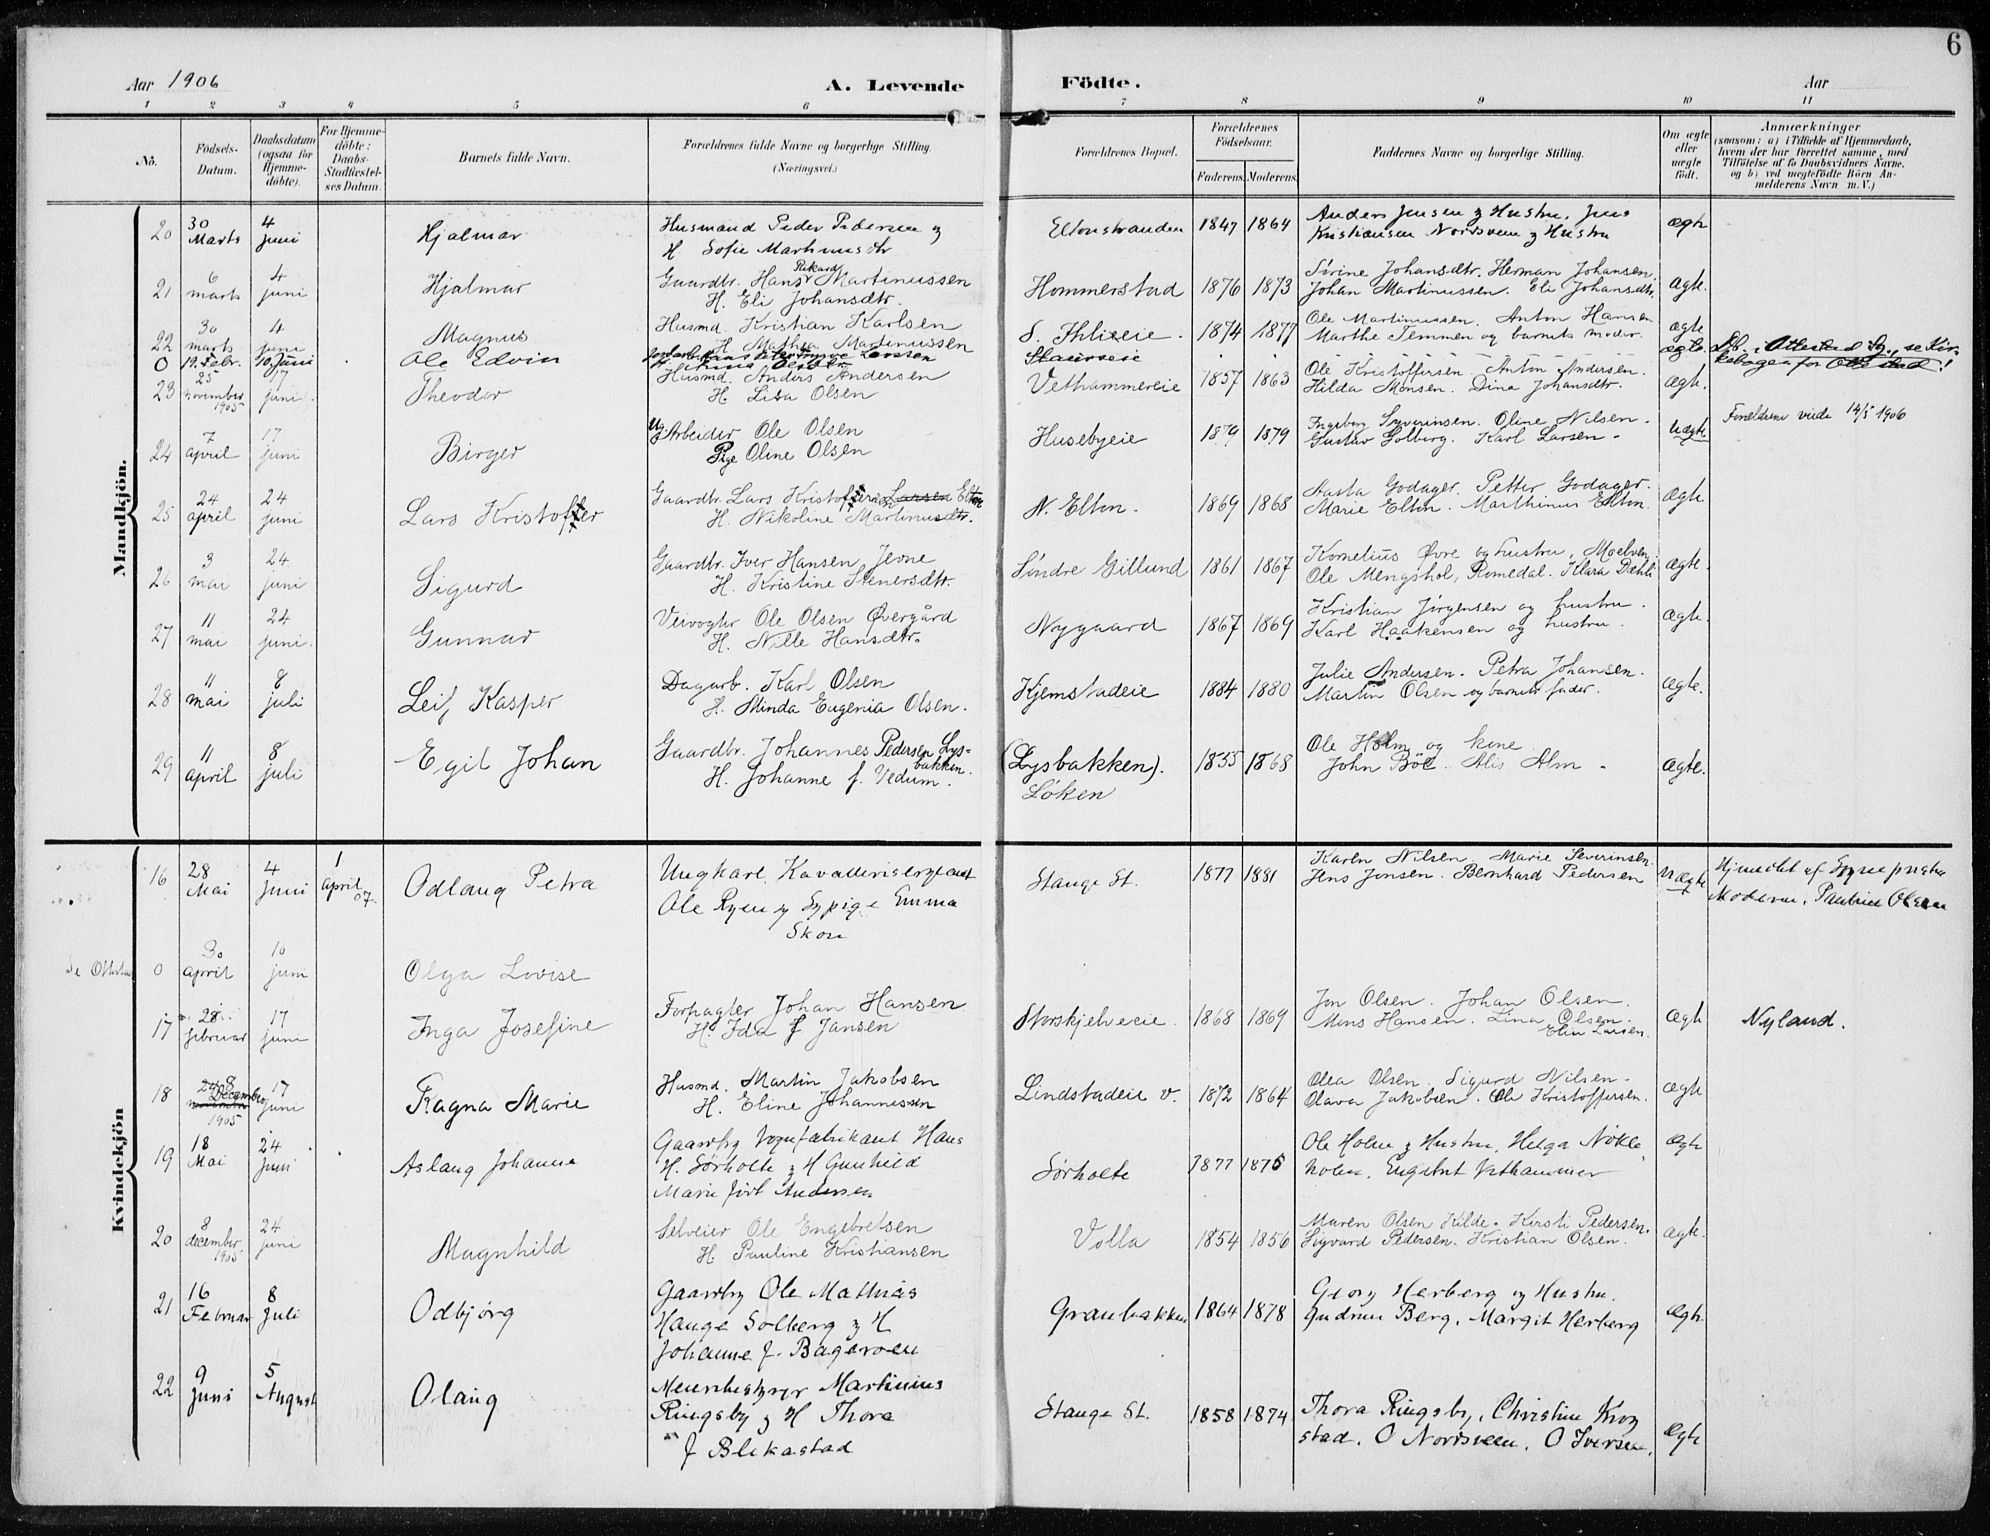 6
Aar 1906 A. Levende Födte. Aar
1 2 3 4 5 6 7 8 9 10 11
No.
Födsels-Datum.
Daabsdatum (ogsaa for Hjemme-döbte).
For Hjemme-döbte: Daabs-Stadfæstel-ses Datum
Barnets fulde Navn.
Forældrenes fulde Navne og borgerlige Stilling.
(Næringsvei.)
Forældrenes Bopæl.
Forældrenes Födselsaar.
Faderens. Moderens.
Faddernes Navne og borgerlige Stilling.
Om ægte eller uægte födt.
Anmærkninger
(saasom: a) i Tilfælde af Hjemmedaab,
hvem der har forrettet samme, med
Tilföielse af to Daabsvidners Navne.
og b) ved uægtefödte Börn An-
melderens Navn m. V.)
Mandkjön.
20 30 Marts 4 Juni Hjalmar Husmand Peder Pedersen og
H Sofie Martinusdtr Eltonstranden 1847 1864 Anders Jensen og Hustru, Jens
Kristiansen Nordsveen og Hustru ægte
21 6 marts 4 juni Hjalmar Gaardbr. Hans Rikard Martinussen
H. Eli Johansdtr. Hommerstad 1876 1873 Sörine Johansdtr. Herman Johansen.
Johan Martinussen. Eli Johansdtr. ægte.
22 30 marts 4 juni Magnus Husmd. Kristian Karlsen
H. Mathea Martinussen 1874 1877 Ole Martinussen. Anton Hansen
Marthe Temmen og barnets moder. ægte
0 19. Febr. 10. Juni Ole Edvin
Staurseie ægte. Ottestad Sg., se Kir-
kebogen for Ottestad!
23 25 november 1905 17 juni. Theodor Husmd. Anders Andersen
H. Lisa Olsen Vethammereie 1857 1863 Ole Kristoffersen. Anton Andersen.
Hilda Monsen. Dina Johansdtr. ægte.
24 7 april 17 juni Birger Ug. Arbeider Ole Olsen
Pige Oline Olsen Husebyeie 1879 1879 Ingeborg Syverinsen. Oline Nilsen.
Gustav Solberg. Karl Larsen. Uægte Forældrene viede 14/5 1906
25 24 april 24 juni Lars Kristoffer Gaardbr. Lars Kristoffersen Larsen Elton
H. Nikoline Martinusdtr. N. Elton. 1869 1868 Aasta Godager. Petter Godager.
Marie Elton. Marthinus Elton. ægte
26 3 mai 24 juni Sigurd Gaardbr. Iver Hansen Jevne
H. Kristine Stenersdtr. Söndre Gillund 1861 1867 Kornelius Øvre og hustru, Moelven.
Ole Mengshol, Romedal. Klara Dæhli ægte.
27 11 mai 24 juni. Gunnar Veivogter Ole Olsen Øvergård
H. Nille Hansdtr. Nygaard 1867 1869 Kristian Jörgensen og hustru.
Karl Haakensen og hustru. ægte.
28 11 mai 8 juli Leif Kasper Dagarb. Karl Olsen
H. Minda Eugenia Olsen. Kjemstadeie 1884 1880 Julie Andersen. Petra Johansen.
Martin Olsen og barnets fader. ægte.
29 11 april 8 juli Egil Johan Gaardbr. Johannes Pedersen Lys-
bakken.
H. Johanne f. Vedum. (Lysbakken).
Löken 1855 1868 Ole Holm og kone
John Böe. Alis Alm. ægte.
Kvindekjön
16 28 Mai 4 Juni 1 April 07. Odlaug Petra Ungkarl, Kavallerisergeant
Ole Ryen og Sypige Emma
Skou Stange St. 1877 1881 Karen Nilsen, Marie Severinsen.
Jens Jensen. Bernhard Pedersen Uægte
0 30 april 10 juni Olga Lovise
17 28 februar 17 juni Inga Josefine Forpagter Johan Hansen
H. Ida f Jansen Storskjelveeie. 1868 1869 Jon Olsen. Johan Olsen.
Mons Hansen. Lina Olsen.
Elin Larsen. ægte Nyland.
18 24 8 December november 1905 17 juni Ragna Marie Husmd. Martin Jakobsen
H. Eline Johannesen Lindstadeie v. 1872 1864 Olea Olsen. Sigurd Nilsen.
Olava Jakobsen. Ole Kristoffersen. ægte
19 18 Mai 24 Juni Aslaug Johanne Gaardbr Vognfabrikant Hans
H. Sørholte og H Gunhild
Marie født Andersen Sørholte 1877 1876 Ole Holm og Hustru, Helga Nökle
holm. Engebret Vethammer ægte
20 8 december 1905 24 juni Magnhild Selveier Ole Engebretsen
H. Pauline Kristiansen Volla 1854 1856 Maren Olsen Kilde. Kirsti Pedersen.
Sigvard Pedersen. Kristian Olsen. ægte.
21 16 Februar 8 Juli Odbjørg Gaardbr Ole Mathias
Hauge Solberg og H
Johanne f. Bagerøen Granbakken 1864 1878 Georg Herberg og Hustru.
Gudrun Berg. Margit Herberg ægte
22 9 Juni 5 August Olaug Meieribestyrer Martinius
Ringsby og H Thora
f Blikastad Stange St. 1858 1874 Thora Ringsby, Christine Krog
stad. O Nordsveen. O Iversen. ægte